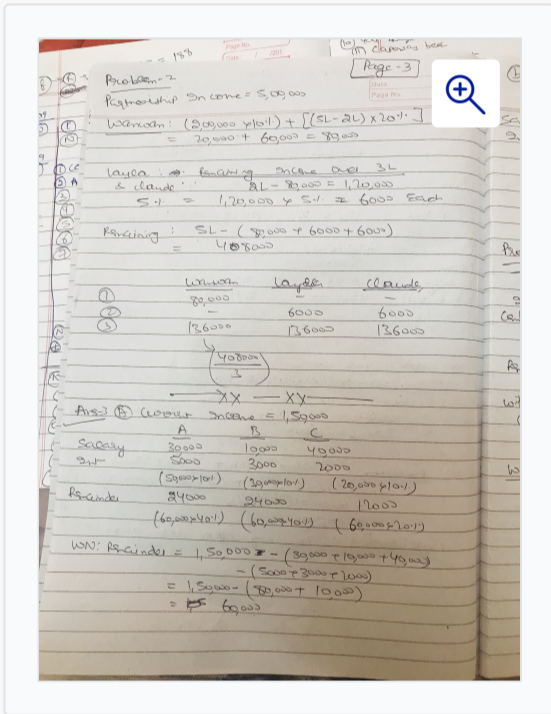 = 188
Page No.
Page - 3
Date
Page No.
Problem - 2
Partnership Income = 5,00,000
Wanwan : (2,00,000 x 10%) + [(5L - 2L) x 20%]
= 20,000 + 60,000 = 80,000
Layla : Remaining Income over 3L
& claude : 2L - 80,000 = 1,20,000
5% = 1,20,000 x 5% = 6000 Each
Remaining : 5L - (80,000 + 6000 + 6000)
= 408000
Wanwan Layla Claude
① 80,000 — —
② — 6000 6000
③ 136000 136000 136000
408000
3
XX — XX
Ans-3 A Income = 1,50,000
A B C
Salary 30,000 10,000 40,000
Int 5000 3000 2000
(50,000x10%) (30,000x10%) (20,000x10%)
Remainder 24000 24000 12000
(60,000x40%) (60,000x40%) (60,000x20%)
WN: Remainder = 1,50,000 - (30,000 + 10,000 + 40,000)
- (5000 + 3000 + 2000)
= 1,50,000 - (80,000 + 10,000)
= 60,000